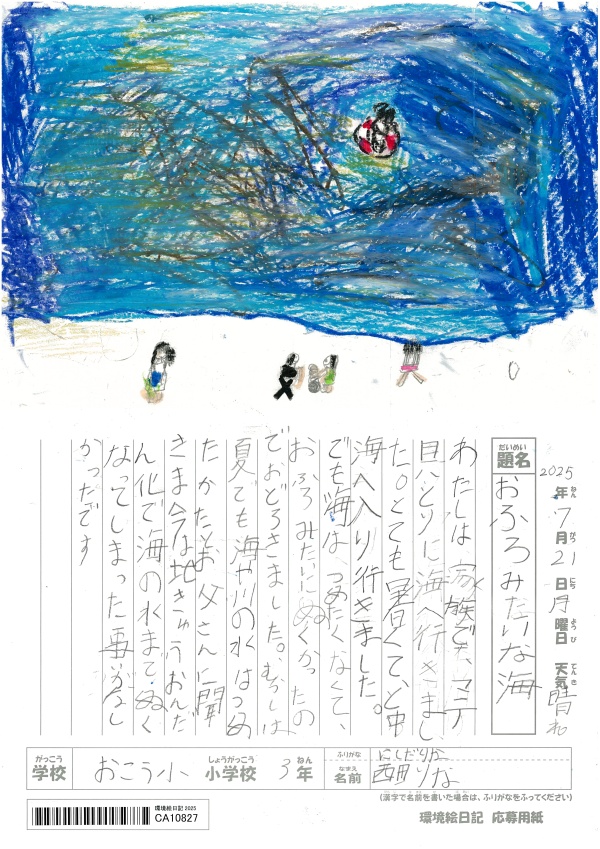 だいめい
題名
おふろみたいな海
2025年7月21日月曜日 天気晴れ
ねん がつ にち ようび てんき
わたしは家族で、マテ
貝とりに海へ行きまし
た。とても暑くて、と中
海へ入り行きました。
でも海は、つめたくなくて、
おふろみたいにぬくかったの
でおどろきました。むかしは
夏でも海や川の水はつめ
たかたとお父さんに聞
きま今は地きゅうおんだ
ん化で海の水まてぬく
なってしまった事がかなし
かったです
がっこう しょうがっこう ねん ふりがな にしだりな
学校 おこう小 小学校 3年 なまえ 名前 西田りな
(漢字で名前を書いた場合は、ふりがなをふってください)
環境絵日記 2025
CA10827
環境絵日記 応募用紙